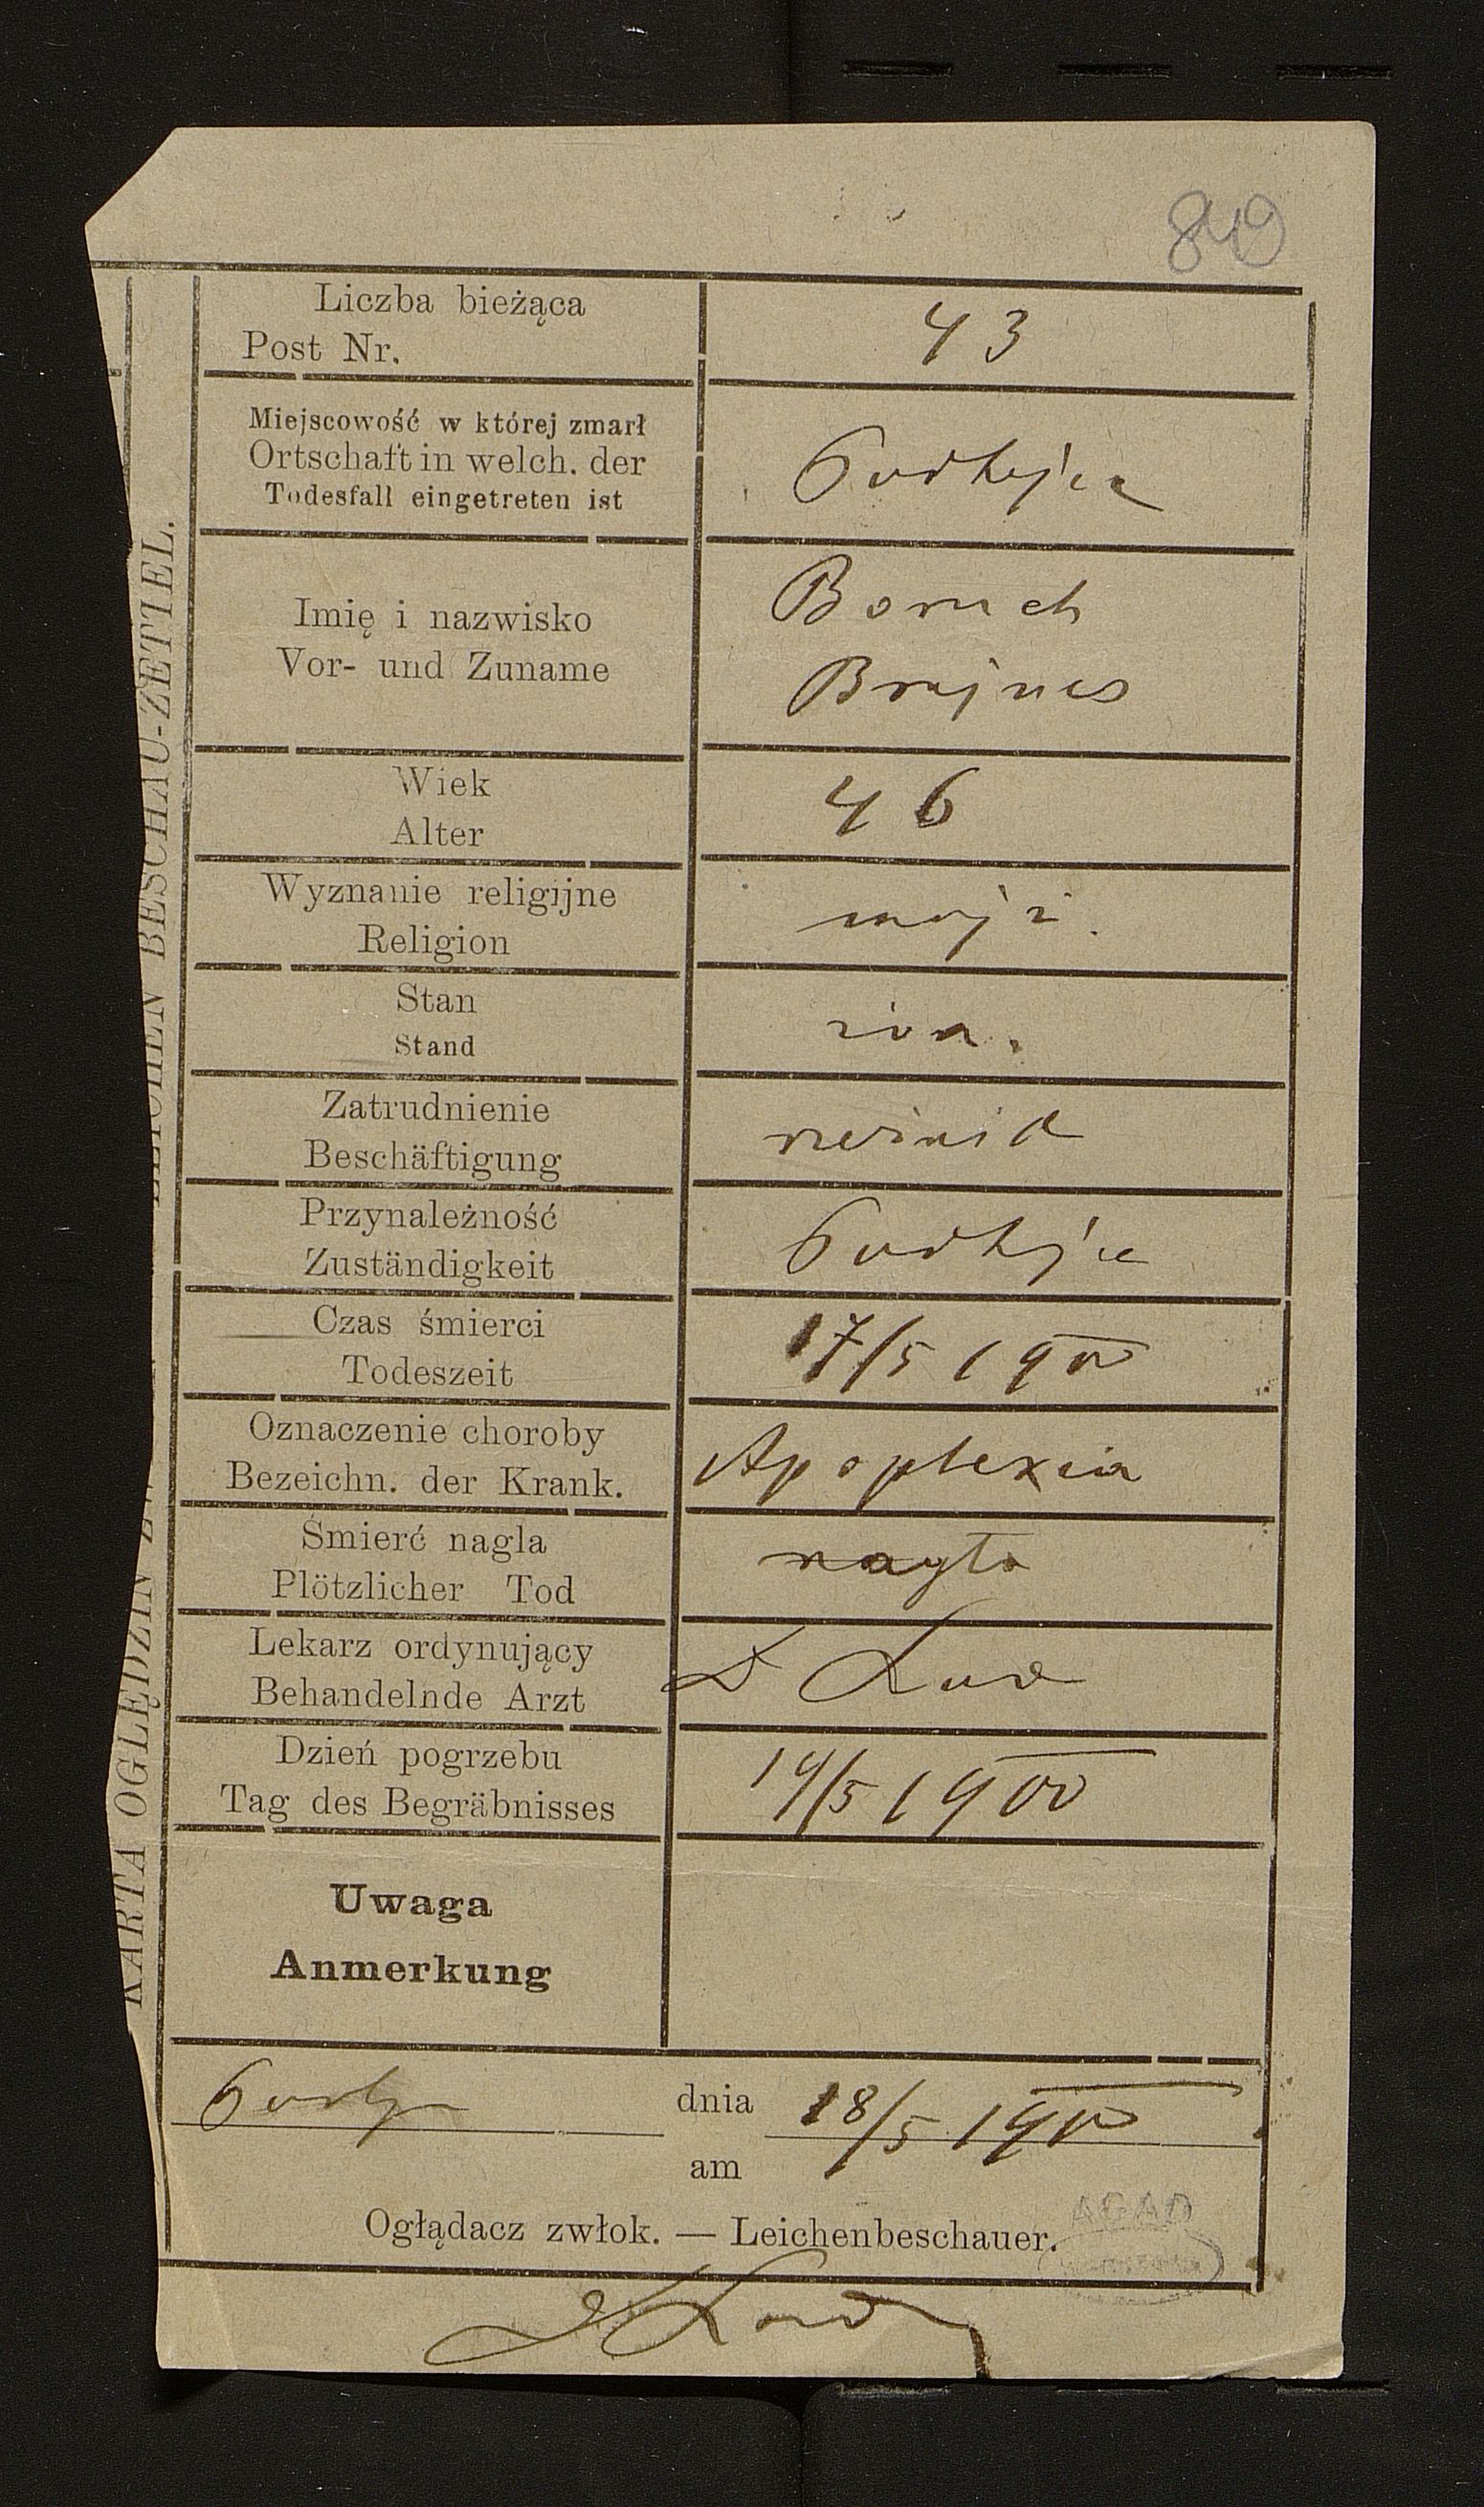 849
Liczba bieżąca
Post Nr.
43
Miejscowość w której zmarł
Ortschaft in welch. der
Todesfall eingetreten ist
Podhajce
Imię i nazwisko
Vor- und Zuname
Boruch
Brajnes
Wiek
Alter
46
Wyznanie religijne
Religion
mojż.
Stan
Stand
Zatrudnienie
Beschäftigung
rzeźnik
Przynależność
Zuständigkeit
Podhajce
Czas śmierci
Todeszeit
17/5 1900
Oznaczenie choroby
Bezeichn. der Krank.
Apoplexia
Śmierć nagla
Plötzlicher Tod
nagła
Lekarz ordynujący
Behandelnde Arzt
Dzień pogrzebu
Tag des Begräbnisses
19/5 1900
Uwaga
Anmerkung
dnia 18/5 1900
am
Oglądacz zwłok. — Leichenbeschauer.
AGAD
KARTA OGLĘDZIN
LEICHEN BESCHAU-ZETTEL.